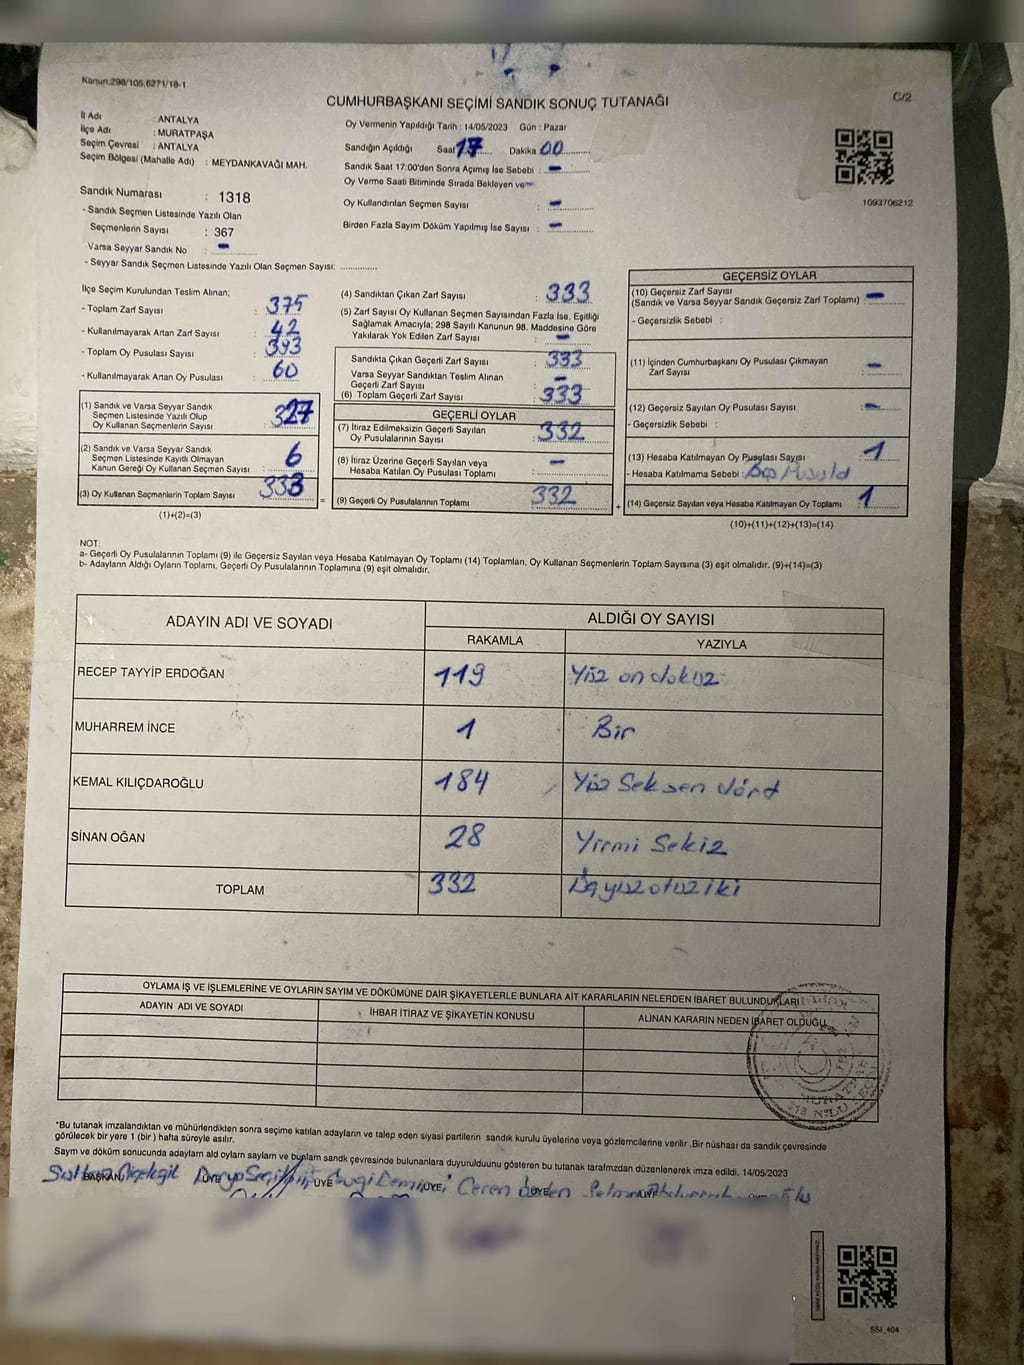 Kanun:298/105,6271/18-1
C/2
CUMHURBAŞKANI SEÇİMİ SANDIK SONUÇ TUTANAĞI
İl Adı : ANTALYA
İlçe Adı : MURATPAŞA
Seçim Çevresi : ANTALYA
Seçim Bölgesi (Mahalle Adı) : MEYDANKAVAĞI MAH.
Sandık Numarası : 1318
- Sandık Seçmen Listesinde Yazılı Olan
Seçmenlerin Sayısı : 367
Varsa Seyyar Sandık No : -
- Seyyar Sandık Seçmen Listesinde Yazılı Olan Seçmen Sayısı: ..............
Oy Vermenin Yapıldığı Tarih : 14/05/2023 Gün : Pazar
Sandığın Açıldığı Saat 17 Dakika 00
Sandık Saat 17:00'den Sonra Açımış İse Sebebi : -
Oy Verme Saati Bitiminde Sırada Bekleyen ve
Oy Kullandırılan Seçmen Sayısı : -
Birden Fazla Sayım Döküm Yapılmış İse Sayısı : -
1093706212
İlçe Seçim Kurulundan Teslim Alınan;
- Toplam Zarf Sayısı : 375
- Kullanılmayarak Artan Zarf Sayısı : 42
- Toplam Oy Pusulası Sayısı : 393
- Kullanılmayarak Artan Oy Pusulası : 60
(1) Sandık ve Varsa Seyyar Sandık
Seçmen Listesinde Yazılı Olup
Oy Kullanan Seçmenlerin Sayısı : 327
(2) Sandık ve Varsa Seyyar Sandık
Seçmen Listesinde Kayıtlı Olmayan
Kanun Gereği Oy Kullanan Seçmen Sayısı : 6
(3) Oy Kullanan Seçmenlerin Toplam Sayısı : 333
(1)+(2)=(3)
(4) Sandıktan Çıkan Zarf Sayısı : 333
(5) Zarf Sayısı Oy Kullanan Seçmen Sayısından Fazla İse, Eşitliği
Sağlamak Amacıyla; 298 Sayılı Kanunun 98. Maddesine Göre
Yakılarak Yok Edilen Zarf Sayısı : -
Sandıkta Çıkan Geçerli Zarf Sayısı : 333
Varsa Seyyar Sandıktan Teslim Alınan
Geçerli Zarf Sayısı : -
(6) Toplam Geçerli Zarf Sayısı : 333
GEÇERLİ OYLAR
(7) İtiraz Edilmeksizin Geçerli Sayılan
Oy Pusulalarının Sayısı : 332
(8) İtiraz Üzerine Geçerli Sayılan veya
Hesaba Katılan Oy Pusulası Toplamı : -
= (9) Geçerli Oy Pusulalarının Toplamı : 332
GEÇERSİZ OYLAR
(10) Geçersiz Zarf Sayısı
(Sandık ve Varsa Seyyar Sandık Geçersiz Zarf Toplamı) : -
- Geçersizlik Sebebi :
(11) İçinden Cumhurbaşkanı Oy Pusulası Çıkmayan
Zarf Sayısı : -
(12) Geçersiz Sayılan Oy Pusulası Sayısı : -
- Geçersizlik Sebebi :
(13) Hesaba Katılmayan Oy Pusulası Sayısı : 1
- Hesaba Katılmama Sebebi :
+ (14) Geçersiz Sayılan veya Hesaba Katılmayan Oy Toplamı : 1
(10)+(11)+(12)+(13)=(14)
NOT:
a- Geçerli Oy Pusulalarının Toplamı (9) ile Geçersiz Sayılan veya Hesaba Katılmayan Oy Toplamı (14) Toplamları, Oy Kullanan Seçmenlerin Toplam Sayısına (3) eşit olmalıdır. (9)+(14)=(3)
b- Adayların Aldığı Oyların Toplamı, Geçerli Oy Pusulalarının Toplamına (9) eşit olmalıdır.
ADAYIN ADI VE SOYADI
ALDIĞI OY SAYISI
RAKAMLA YAZIYLA
RECEP TAYYİP ERDOĞAN 119 Yüz on dokuz
MUHARREM İNCE 1 Bir
KEMAL KILIÇDAROĞLU 184 Yüz Seksen dört
SİNAN OĞAN 28 Yirmi Sekiz
TOPLAM 332 Üçyüz otuz iki
OYLAMA İŞ VE İŞLEMLERİNE VE OYLARIN SAYIM VE DÖKÜMÜNE DAİR ŞİKAYETLERLE BUNLARA AİT KARARLARIN NELERDEN İBARET BULUNDUKLARI
ADAYIN ADI VE SOYADI İHBAR İTİRAZ VE ŞİKAYETİN KONUSU ALINAN KARARIN NEDEN İBARET OLDUĞU
*Bu tutanak imzalandıktan ve mühürlendikten sonra seçime katılan adayların ve talep eden siyasi partilerin sandık kurulu üyelerine veya gözlemcilerine verilir .Bir nüshası da sandık çevresinde
görülecek bir yere 1 (bir) hafta süreyle asılır.
Sayım ve döküm sonucunda adayların ald oyların sayları ve bunların sandk çevresinde bulunanlara duyurulduunu gösteren bu tutanak tarafmzdan düzenlenerek imza edildi. 14/05/2023
BAŞKAN ÜYE ÜYE ÜYE ÜYE ÜYE
Ceren
SSI_404